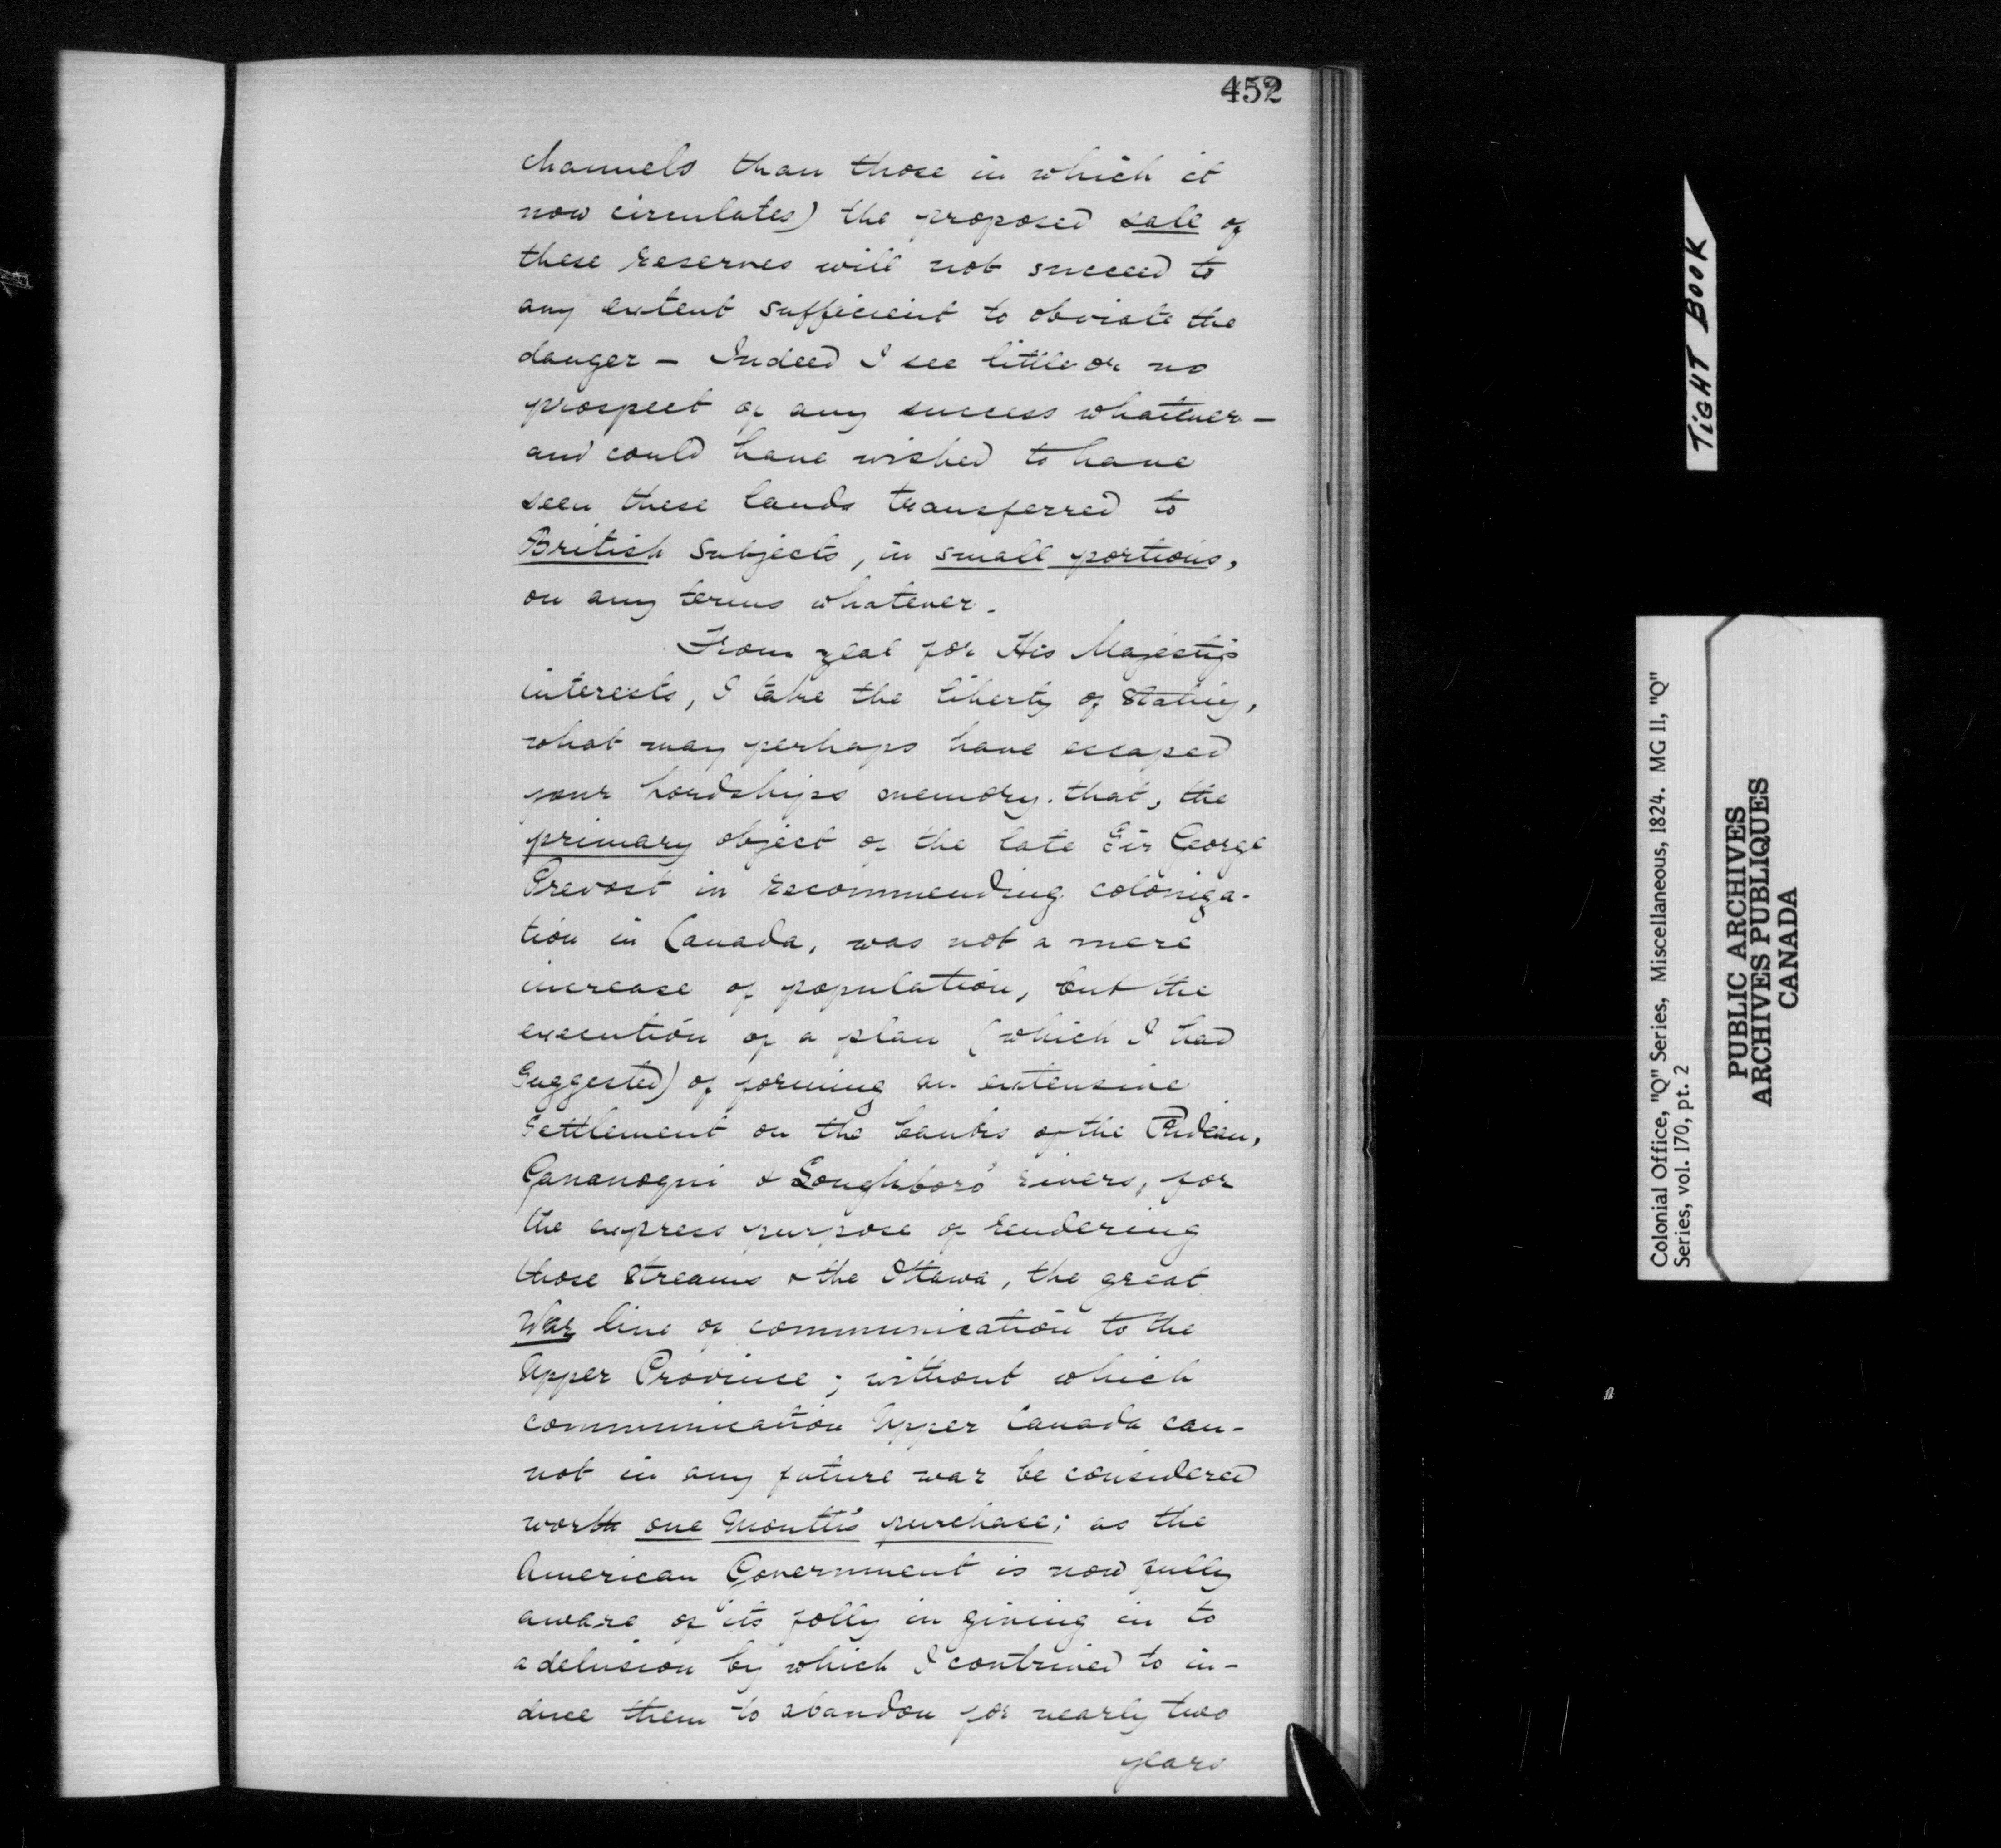 452
channels than those in which it
now circulates) the proposed sale of
these reserves will not succeed to
any extent sufficient to obviate the
danger — Indeed I see little or no
prospect of any success whatever —
and could have wished to have
seen these lands transferred to
British Subjects, in small portions,
on any terms whatever.
From zeal for His Majesty's
interests, I take the liberty of stating,
what may perhaps have escaped
your Lordships memory. that, the
primary object of the late Sir George
Prevost in recommending coloniza-
tion in Canada, was not a mere
increase of population, but the
execution of a plan (which I had
Suggested) of forming an extensive
Settlement on the banks of the Rideau,
Gananoqui & Loughboro' rivers, for
the express purpose of rendering
those Streams & the Ottawa, the great
War line of communication to the
Upper Province; without which
communication Upper Canada can-
not in any future war be considered
worth one month's purchase; as the
American Government is now fully
aware of its folly in giving in to
a delusion by which I contrived to in-
duce them to abandon for nearly two
years
TIGHT BOOK
Colonial Office, "Q" Series, Miscellaneous, 1824. MG 11, "Q"
Series, vol. 170, pt. 2
PUBLIC ARCHIVES
ARCHIVES PUBLIQUES
CANADA